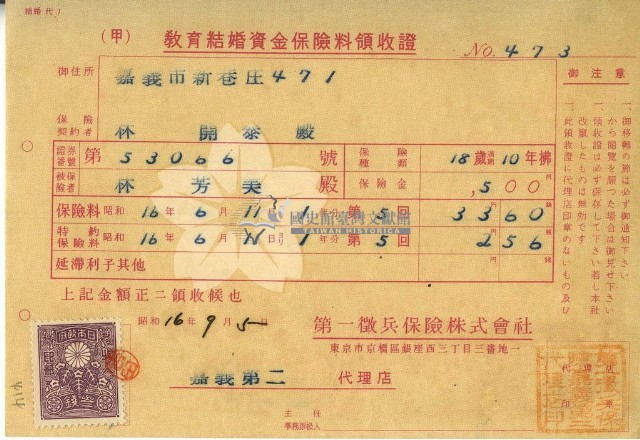 結婚 代 1
(甲) 教育結婚資金保險料領收證
No. 473
御住所 嘉義市新巷庄471
保險契約者 林 開泰 殿
證券番號 第 53066 號 保險種類 18歲滿期10年拂
被保險者 林 芳美 殿 保險金 ,500
保險料 昭和 16年 6月 11日ヨリ 1年分 第5回 3360
特約保險料 昭和 16年 6月 11日ヨリ 1年分 第5回 256
延滯利子其他
上記金額正ニ領收候也
昭和 16年 9月 5
第一徵兵保險株式會社
東京市京橋區銀座西三丁目三番地一
嘉義第二 代理店
主任
事務取扱人
代理店印
御注意
一、御移轉の節は必ず御通知下さい
一、領收證は必ず保存して下さい若し本社から閲覽を願つた場合は御見せ下さい
一、此領收證に代理店印章のないもの及び改竄したものは無效です
國史館臺灣文獻館
TAIWAN HISTORICA